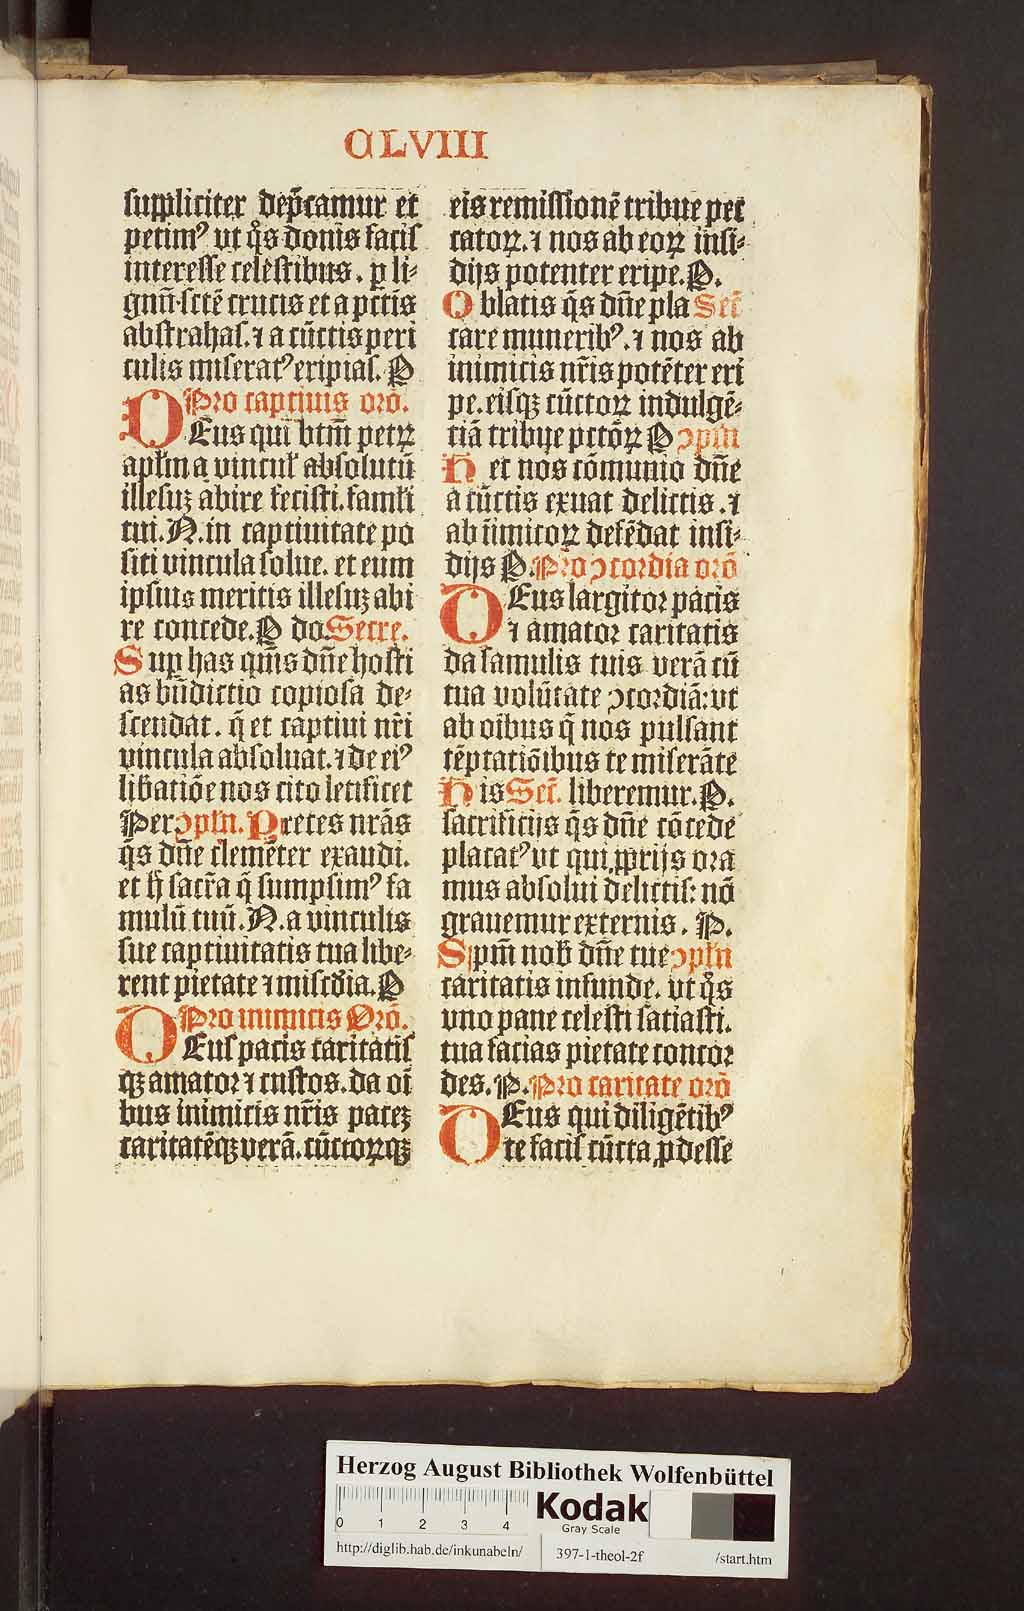 CLVIII
suppliciter dep̄camur et
petimꝰ vt q̊s donis facis
interesse celestibus. ꝑ li-
gnū sctē crucis et a pctīs
abstrahas. ⁊ a cūctis peri
culis miseratꝰ eripias. P
Pro captiuis orō.
DEus qui btm̄ petꝝ
apłm a vincuł absolutū
illesuꝫ abire fecisti. famłi
tui. N. in captiuitate po
siti vincula solue. et eum
ipsius meritis illesuꝫ abi
re concede. P do. Secre.
Sup has qm̄s dn̄e hosti
as bn̄dictio copiosa de-
scendat. q̄ et captiui nr̄i
vincula absoluat. ⁊ de eiꝰ
lib̄atiōe nos cito letificet
Per ↄpłn. Preces nrās
q̄s dn̄e clemēter exaudi.
et h̄ sacr̄a q̄ sumpsimꝰ fa
mulū tuū. N. a vinculis
sue captiuitatis tua libe-
rent pietate ⁊ miscd̄ia. P
Pro inimicis Orō.
DEus pacis caritatis
qꝫ amator ⁊ custos. da oī
bus inimicis nr̄is paceꝫ
caritatēqꝫ verā. cūctoꝝqꝫ
eis remissionē tribue pec
catoꝝ. ⁊ nos ab eoꝝ insi-
dijs potenter eripe. P.
Oblatis q̄s dn̄e pla Sec̄
care muneribꝰ. ⁊ nos ab
inimicis nr̄is potēter eri
pe. eisqꝫ cūctoꝝ indulgē-
tiā tribue pctōꝝ P ↄpłn
Hec nos cōmunio dn̄e
a cūctis exuat delictis. ⁊
ab iīmicoꝝ defēdat insi-
dijs P. Pro ↄcordia orō
DEus largitor pacis
⁊ amator caritatis
da famulis tuis verā cū
tua volūtate ↄcordiā: vt
ab oībus q̄ nos pulsant
tēptatiōibus te miserāte
His Sec̄. liberemur. P.
sacrificijs q̄s dn̄e cōcede
placatꝰ vt qui ꝓprijs ora
mus absolui delictis: nō
grauemur externis. P.
Spm̄ nob̄ dn̄e tue ↄpłn
caritatis infunde. vt q̊s
vno pane celesti satiasti.
tua facias pietate concor
des. P. Pro caritate orō
DEus qui diligētibꝰ
te facis cūcta ꝓdesse
Herzog August Bibliothek Wolfenbüttel
0 1 2 3 4
Kodak
Gray Scale
http://diglib.hab.de/inkunabeln/ 397-1-theol-2f /start.htm